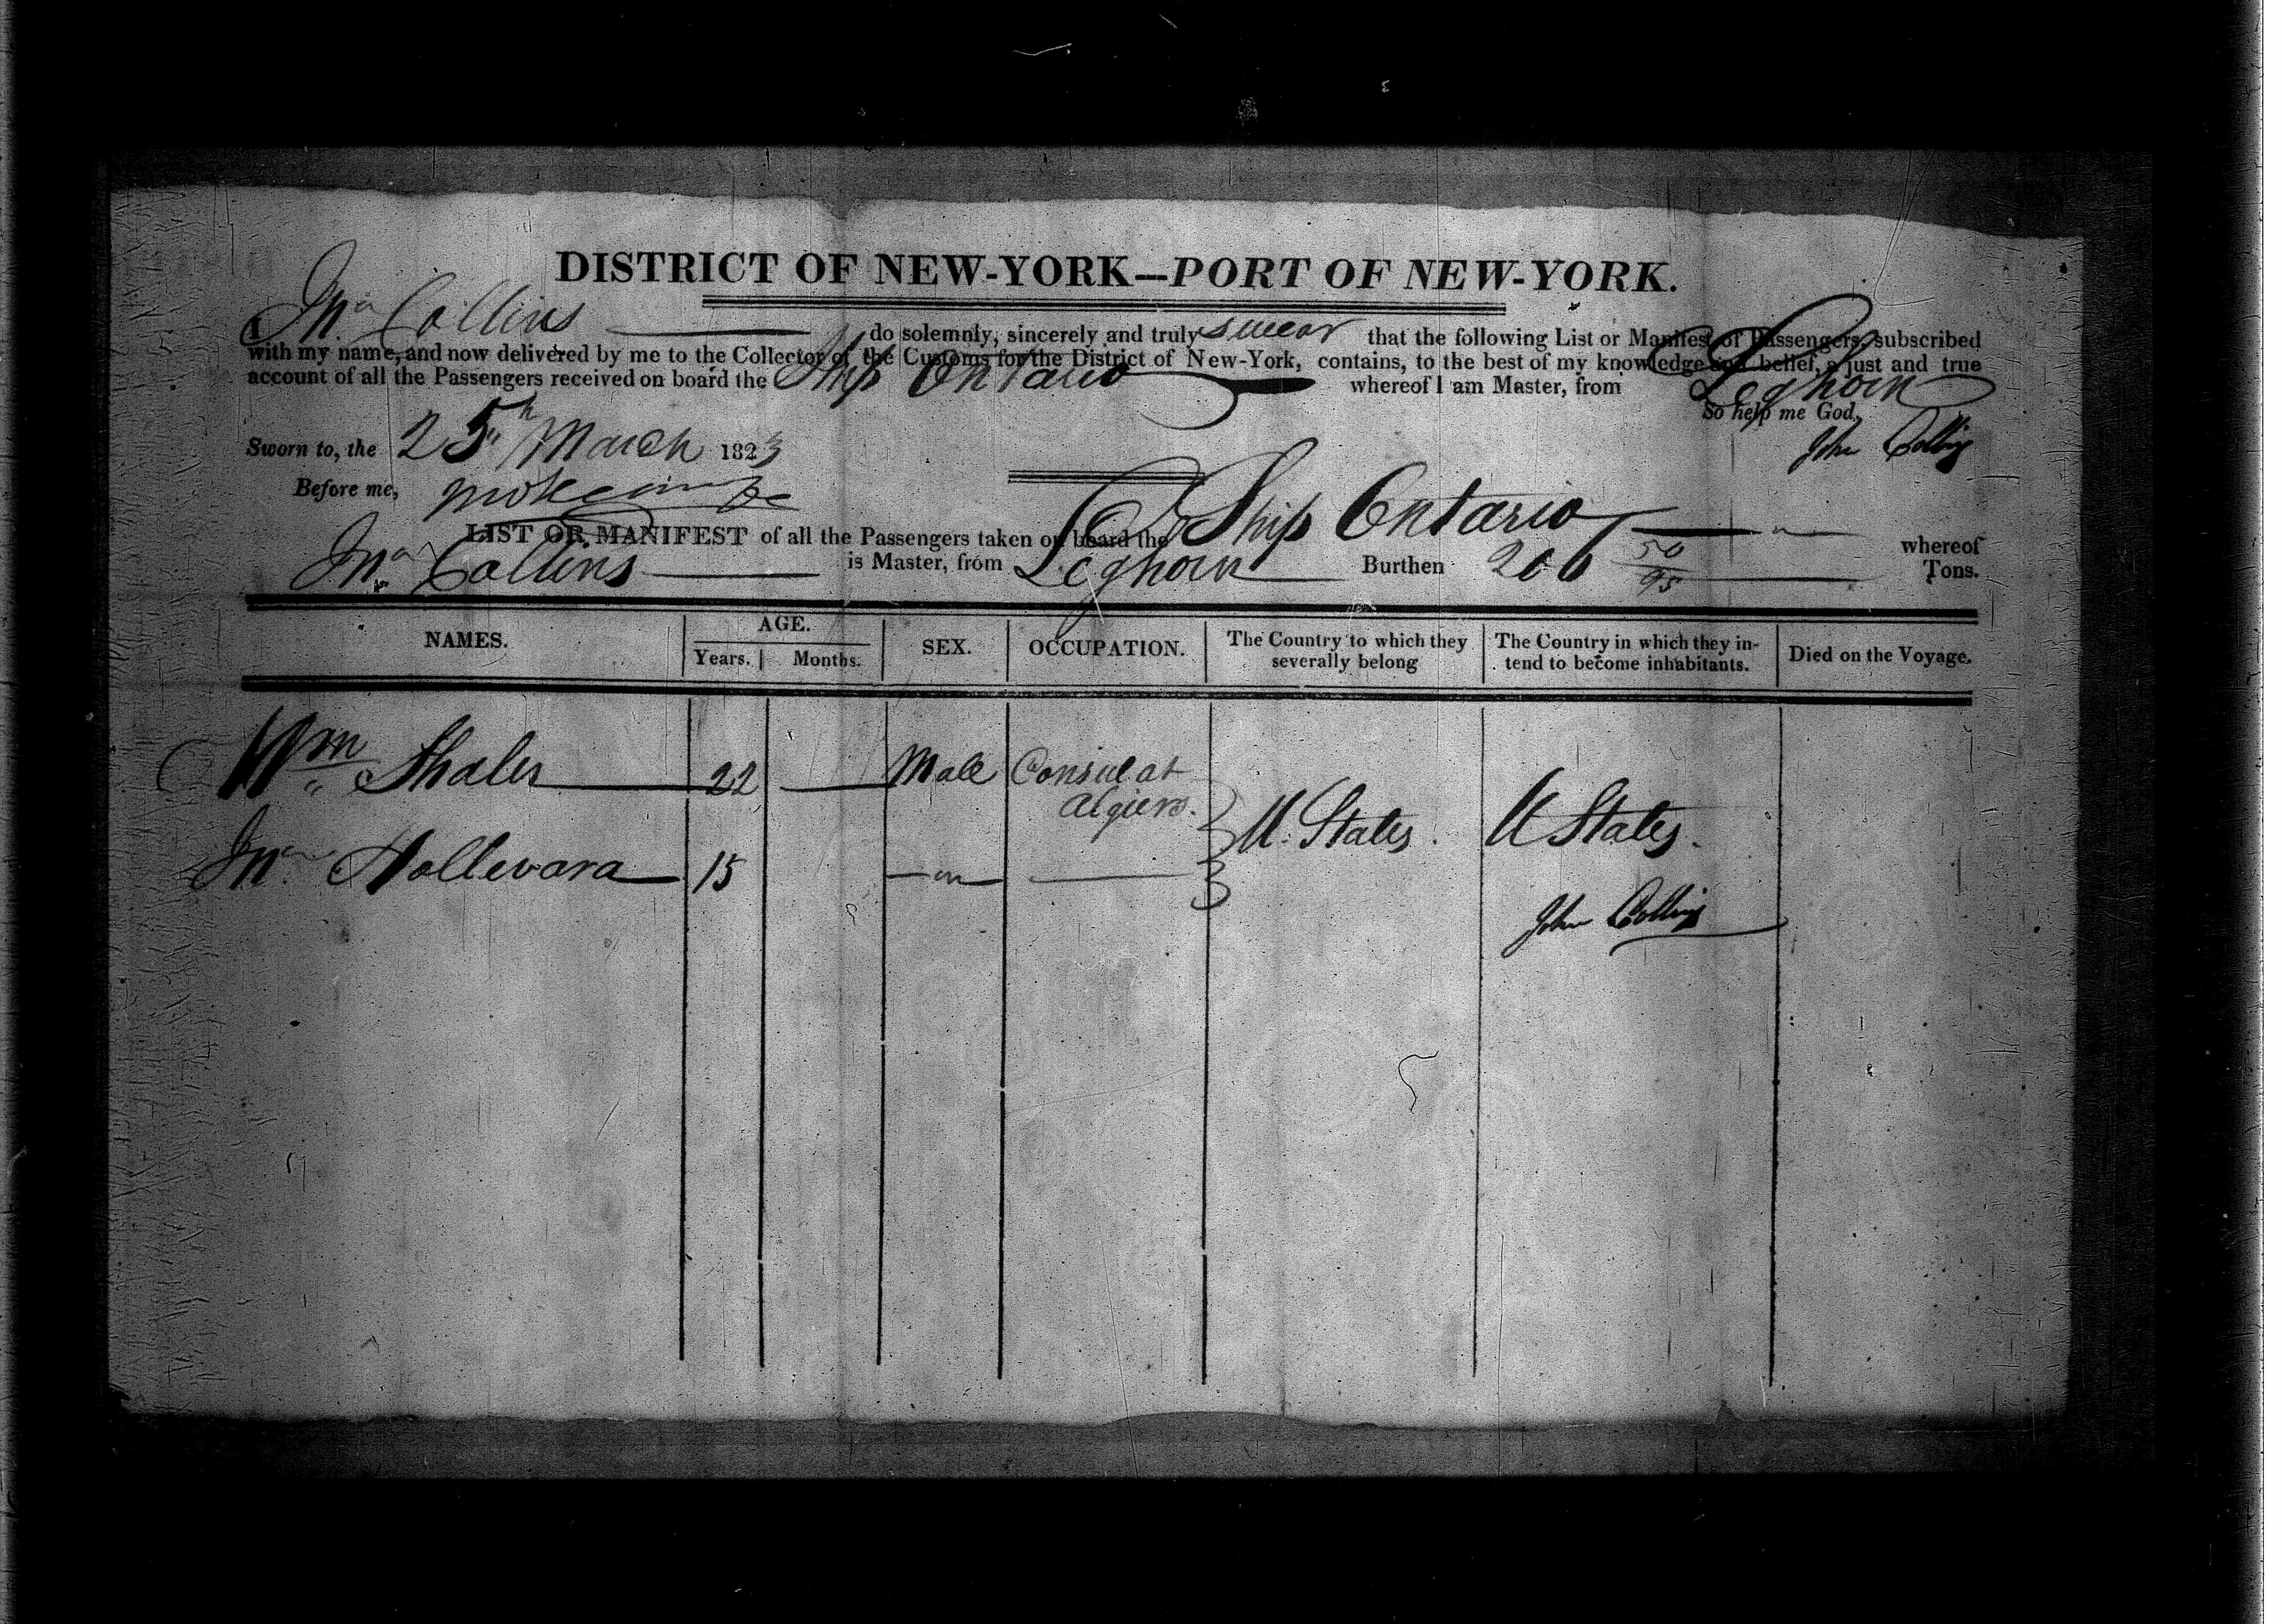 DISTRICT OF NEW-YORK—PORT OF NEW-YORK.
I, Jno Collins do solemnly, sincerely and truly swear that the following List or Manifest of Passengers, subscribed
with my name, and now delivered by me to the Collector of the Customs for the District of New-York, contains, to the best of my knowledge and belief, a just and true
account of all the Passengers received on board the Ship Ontario whereof I am Master, from Leghorn
So help me God,
Sworn to, the 25th March 1823 John Collins
Before me,
LIST OR MANIFEST of all the Passengers taken on board the Ship Ontario whereof
Jno Collins is Master, from Leghorn Burthen 266 50/95 Tons.
NAMES. AGE. Years. Months. SEX. OCCUPATION. The Country to which they severally belong The Country in which they intend to become inhabitants. Died on the Voyage.
Wm Shaler 22 Male Consul at
Algiers.
U. States. U States.
Jno Hollevara 15
John Collins